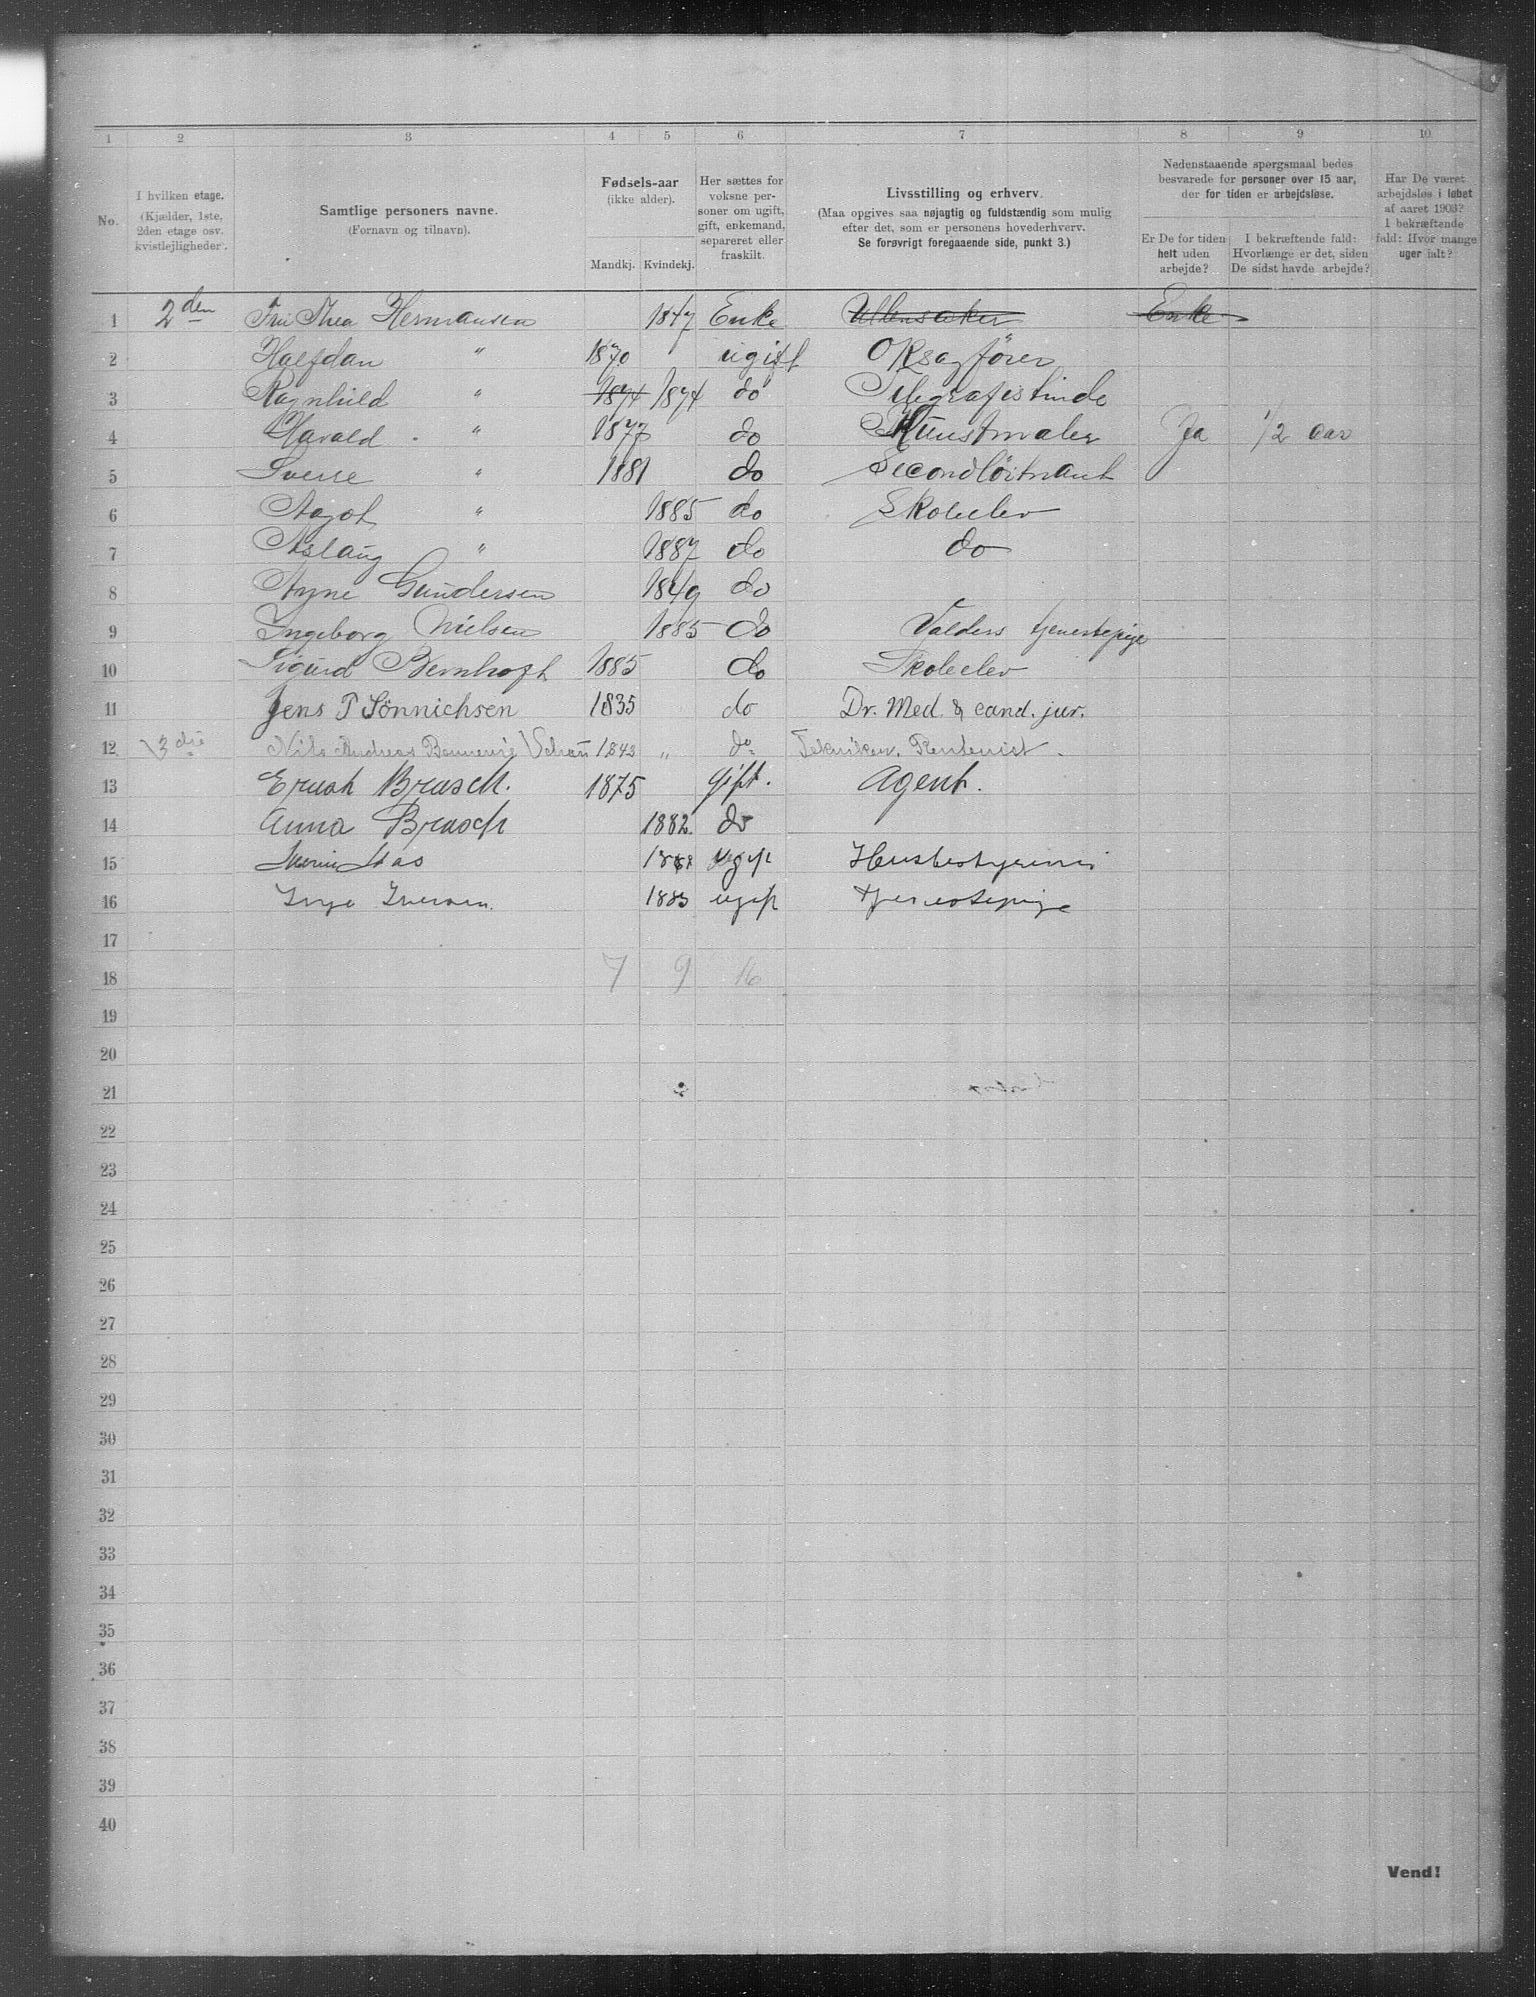 1 2 3 4 5 6 7 8 9 10
No.
I hvilken etage.
(Kjælder, 1ste,
2den etage osv.
kvistlejligheder.
Samtlige personers navne.
(Fornavn og tilnavn).
Fødsels-aar
(ikke alder).
Mandkj. Kvindekj.
Her sættes for
voksne per-
soner om ugift,
gift, enkemand,
separeret eller
fraskilt.
Livsstilling og erhverv.
(Maa opgives saa nøjagtig og fuldstændig som mulig
efter det, som er personens hovederhverv.
Se forøvrigt foregaaende side, punkt 3.)
Nedenstaaende spørgsmaal bedes
besvarede for personer over 15 aar,
der for tiden er arbejdsløse.
Er De for tiden
helt uden
arbejde?
I bekræftende fald:
Hvorlænge er det, siden
De sidst havde arbejde?
Har De været
arbejdsløs i løbet
af aaret 1903?
I bekræftende
fald: Hvor mange
uger ialt?
1 2den Fru Thea Hermansen 1847 Enke Ullensaker Enke
2 Halfdan " 1870 ugift ORsagfører
3 Ragnhild " 1874 1874 do Telegrafistinde
4 Harald " 1877 do Kunstmaler Ja 1/2 aar
5 Sverre " 1881 do Secondløitnant
6 Aagot " 1885 do Skoleelev
7 Aslaug " 1887 do do
8 Gundersen 1849 do
9 Ingeborg Nielsen 1885 do Valders tjenestepige
10 Sigurd Bernhoft 1885 do Skoleelev
11 Jens P Sönnichsen 1835 do Dr. Med. & cand. jur.
12 3die Nils Andreas 1843 " do Tekniker. Rentenist.
13 Brasch. 1875 gift. Agent.
14 Anna Brasch 1882. do
15 Aas ugift
16 Inga Iversen. 1883 ugift Tjenestepige
17
18 7 9 16
19
20
21
22
23
24
25
26
27
28
29
30
31
32
33
34
35
36
37
38
39
40
Vend!